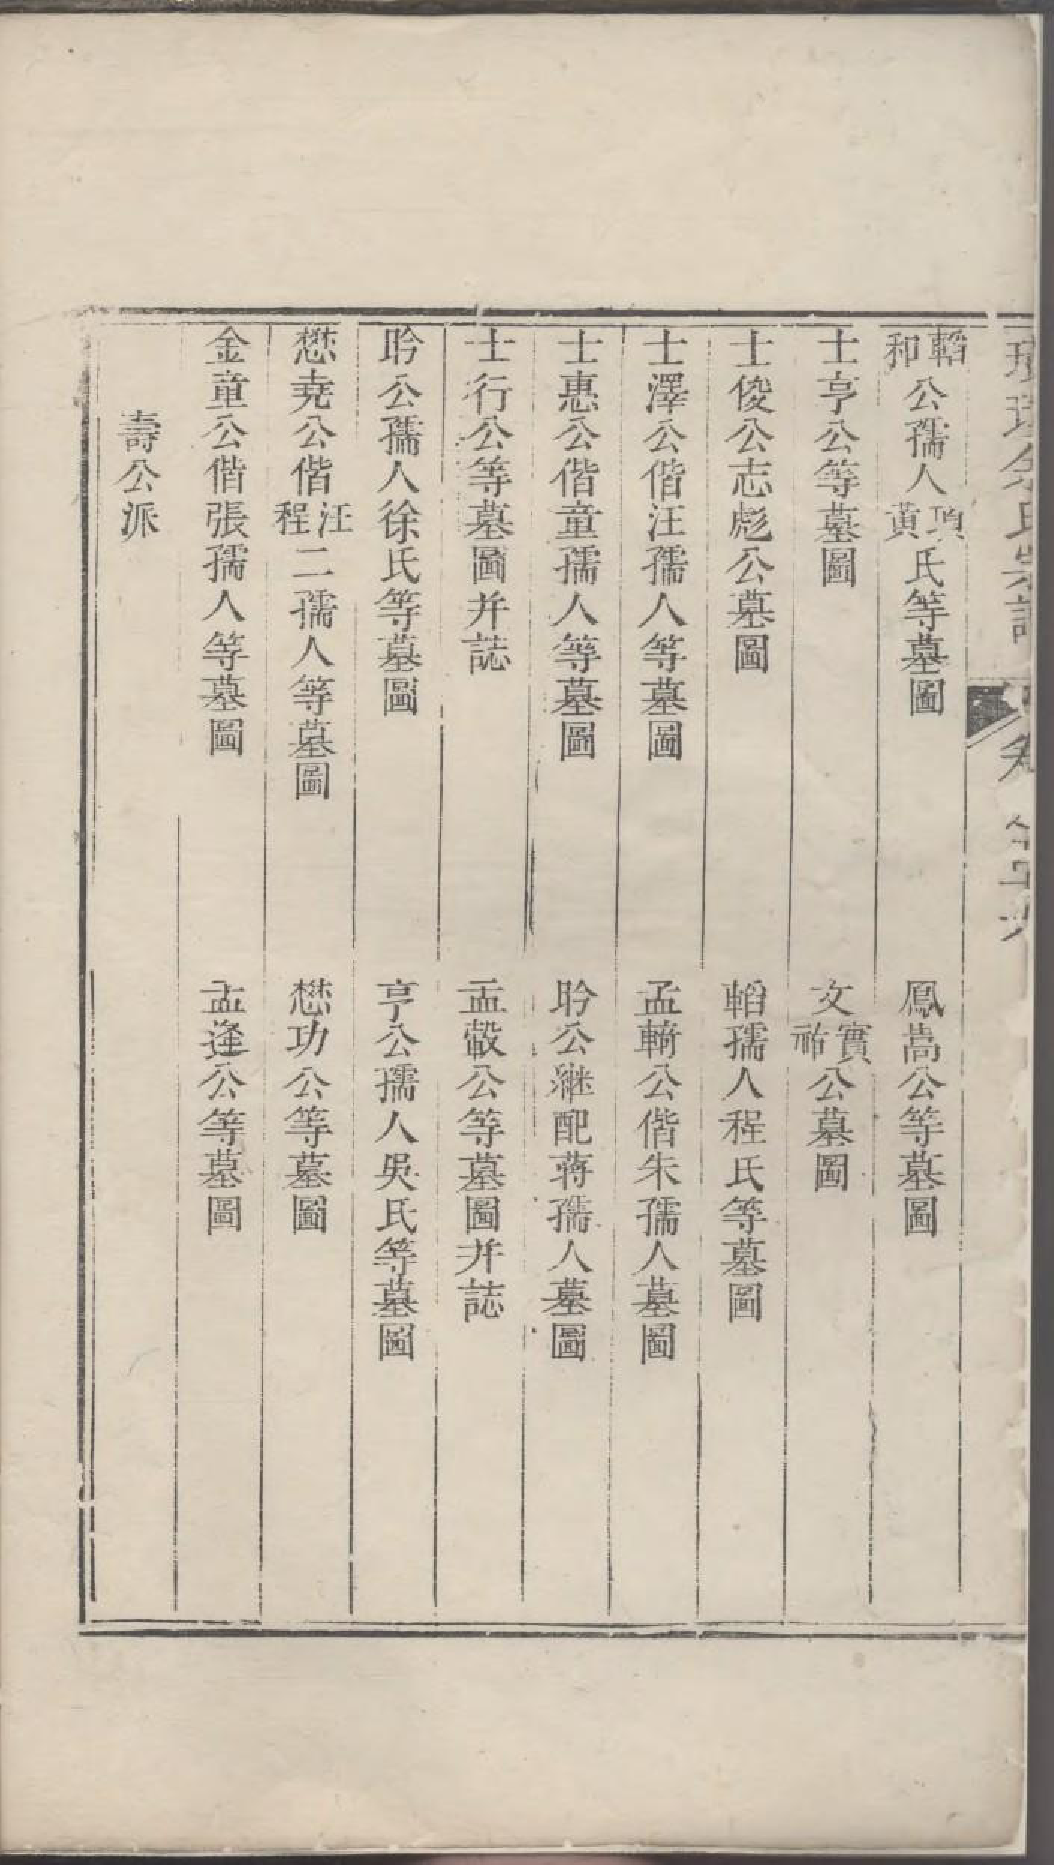 轁和公孺人項黃氏等墓圖　鳳嵩公等墓圖
士亨公等墓圖　文實祔公墓圖
士俊公志彪公墓圖　轁孺人程氏等墓圖
士澤公偕汪孺人等墓圖　孟輢公偕朱孺人墓圖
士惠公偕童孺人等墓圖　昑公継配蒋孺人墓圖
士行公等墓圖并誌　孟轂公等墓圖并誌
昑公孺人徐氏等墓圖　亨公孺人吳氏等墓圖
懋堯公偕汪程二孺人等墓圖　懋功公等墓圖
金童公偕張孺人等墓圖　孟逢公等墓圖
壽公派